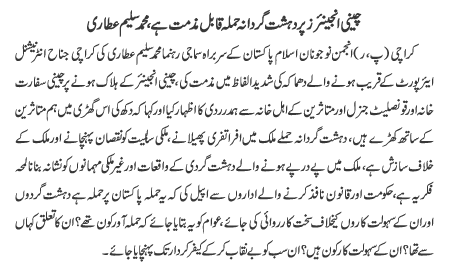 چینی انجینئرز پر دہشت گردانہ حملہ قابل مذمت ہے، محمد سلیم عطاری
کراچی (پ، ر) انجمن نوجوانان اسلام پاکستان کے سربراہ سماجی رہنما محمد سلیم عطاری کی کراچی جناح انٹرنیشنل
ایئرپورٹ کے قریب ہونے والے دھماکہ کی شدید الفاظ میں مذمت کی، چینی انجینئر کے ہلاک ہونے پر چینی سفارت
خانہ اور قونصلیٹ جنرل اور متاثرین کے اہل خانہ سے ہمدردی کا اظہار کیا اور کہا کہ دکھ کی اس گھڑی میں ہم متاثرین
کے ساتھ کھڑے ہیں، دہشت گردانہ حملے ملک میں افراتفری پھیلانے، ملکی سالمیت کو نقصان پہنچانے اور ملک کے
خلاف سازش ہے، ملک میں پے درپے ہونے والے دہشت گردی کے واقعات اور غیر ملکی مہمانوں کو نشانہ بنانا لمحہ
فکریہ ہے، حکومت اور قانون نافذ کرنے والے اداروں سے اپیل کی کہ یہ حملہ پاکستان پر حملہ ہے دہشت گردوں
اور ان کے سہولت کاروں کیخلاف سخت کارروائی کی جائے، عوام کو یہ بتایا جائے کہ حملہ آور کون تھے؟ ان کا تعلق کہاں
سے تھا؟ ان کے سہولت کار کون ہیں؟ ان سب کو بے نقاب کر کے کیفر کردار تک پہنچایا جائے۔